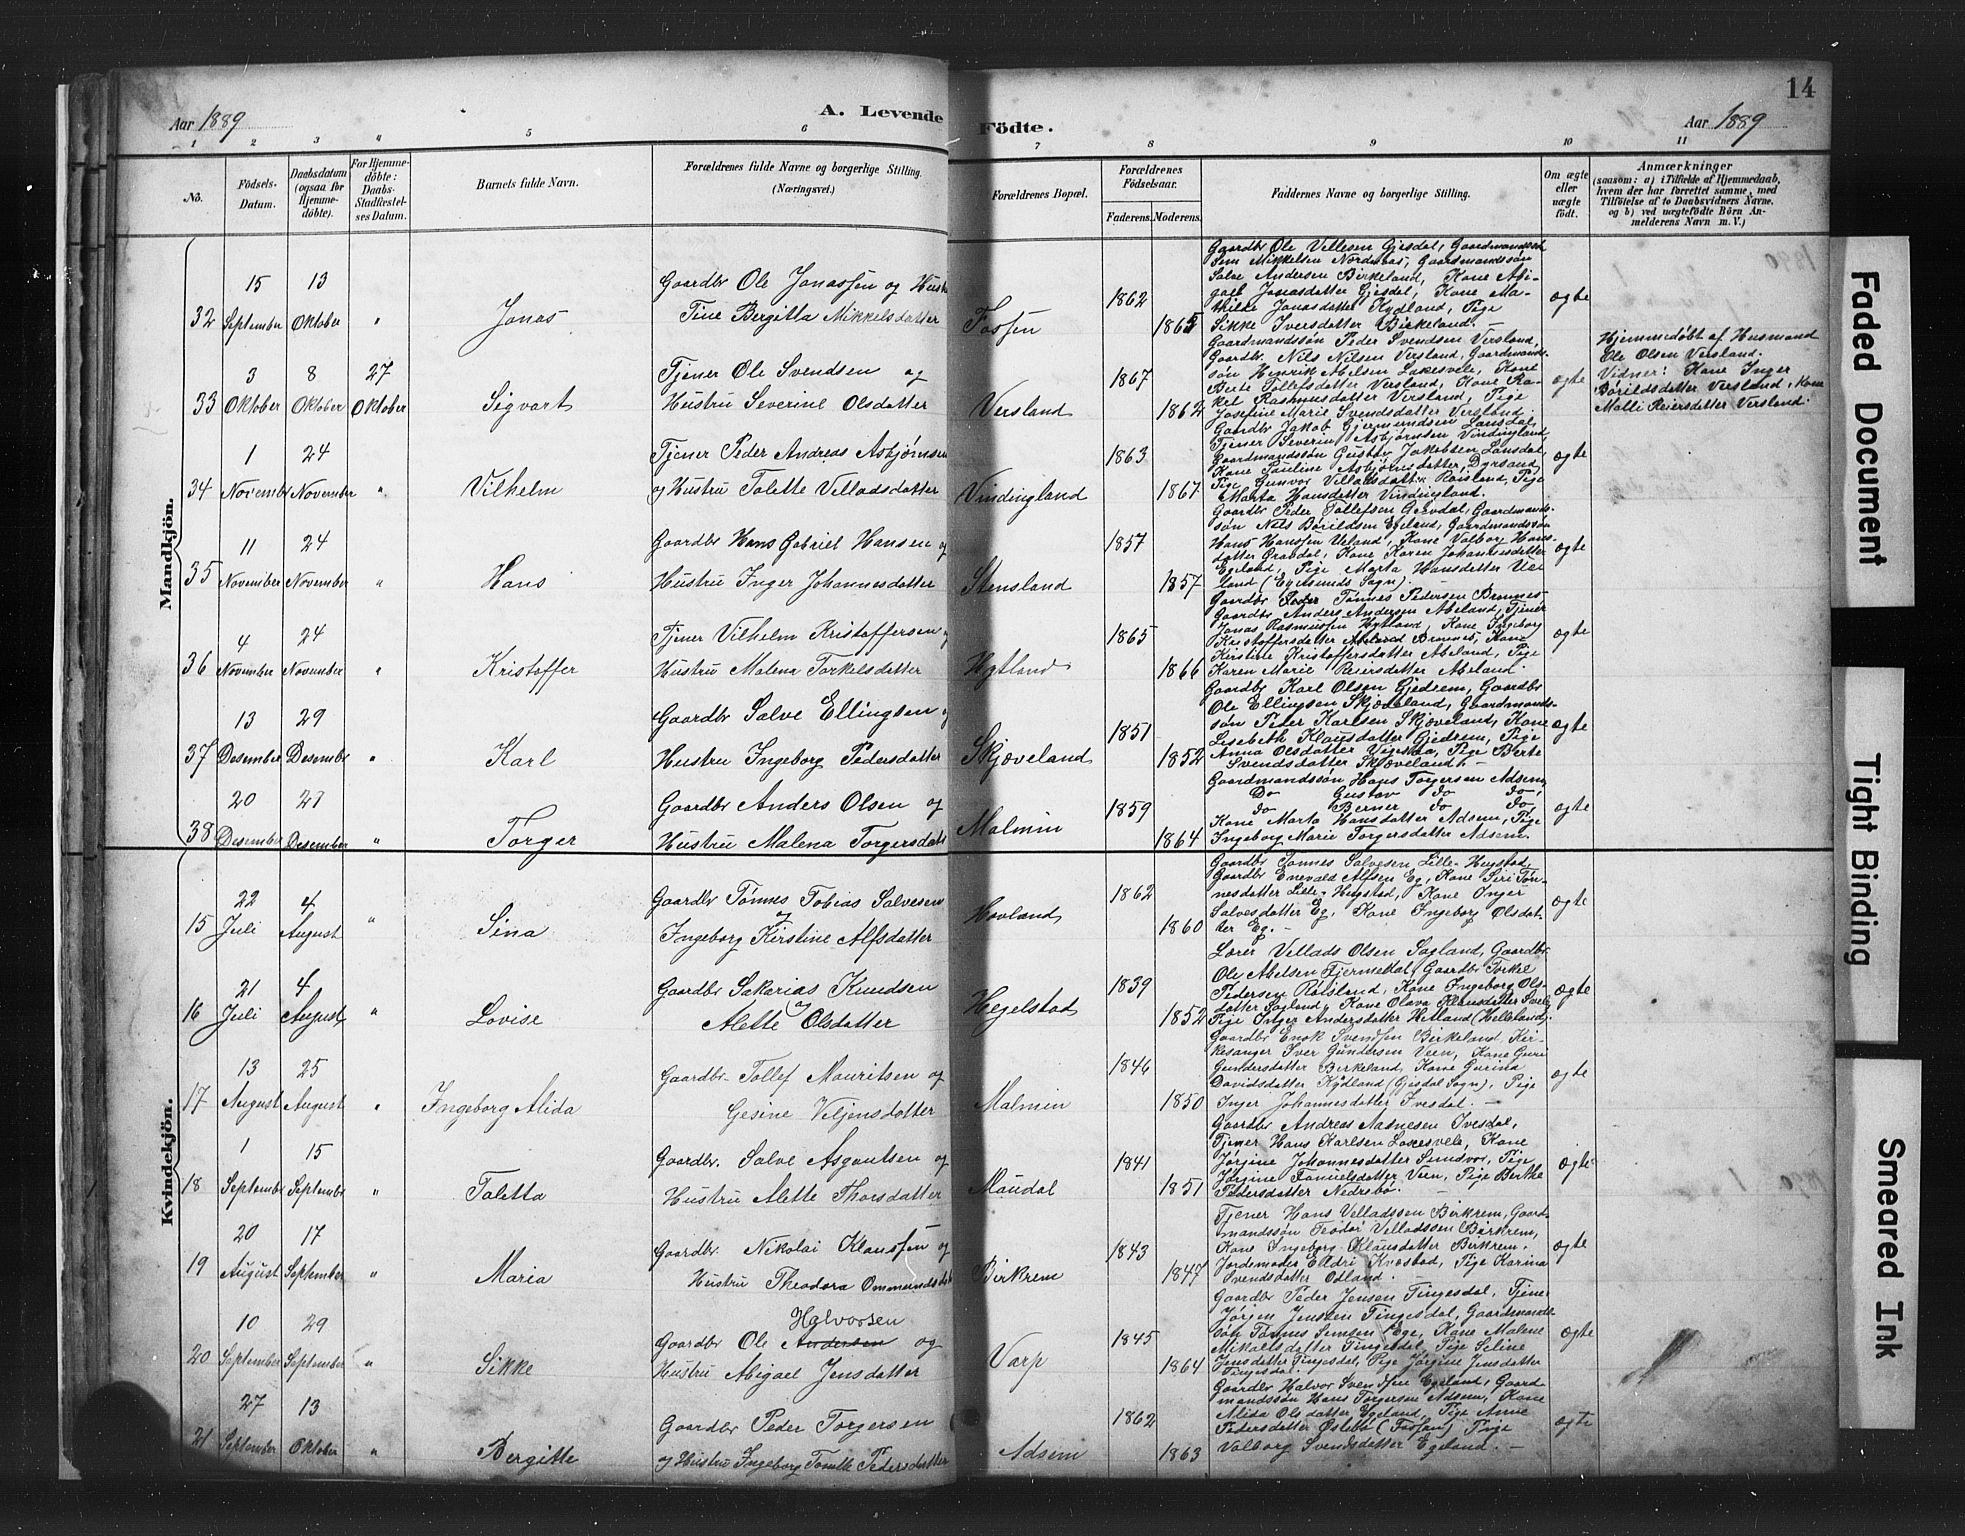 Aar 1889
A. Levende Födte.
Aar 1889
14
1 2 3 " 5 6 7 8 9 10 11
No.
Födsels-
Datum.
Daabsdatum
(ogsaa for
Hjemme-
döbte).
For Hjemme-
döbte:
Daabs-
Stadfæstel-
ses Datum.
Barnets fulde Navn.
Forældrenes fulde Navne og borgerlige Stilling.
(Næringsvei.)
Forældrenes Bopæl.
Forældrenes
Födselsaar.
Faderens. Moderens.
Faddernes Navne og borgerlige Stilling.
Om ægte
eller
uægte
födt.
Anmærkninger
(saasom: a) i Tilfælde af Hjemmedaab,
hvem der har forrettet samme, med
Tilföielse af to Daabsvidners Navne,
og b) ved uægtefödte Börn An-
melderens Navn m. V.)
Mandkjön.
32
15 September
13 Oktober
"
Jonas
Gaardbr Ole Jonassen og Hustr
Tine Bergitta Mikkelsdatter
Fossen
1862
1865
Gaardbr Ole Vellesen Gjesdal, Gaardmandssøn
Salve Andersen Birkeland, Kone Abi-
gael Jonasdatter Gjesdal, Kone Ma-
thilde Jonasdatter Kydland, Pige
Sikke Iversdatter Birkeland. –
ægte
33
3 Oktober
8 Oktober
27 Oktober
Sigvart
Tjener Ole Svendsen og
Hustru Severine Olsdatter
Versland
1867
1862
Gaardmandssøn Peder Svendsen Versland,
Gaardbr. Nils Nilsen Versland, Gaardmands-
søn Henrik Abelsen Laksesvele, Kone
Berte Tollefsdatter Versland, Kone Ra-
kel Rasmusdatter Versland, Pige
Josefine Marie Svendsdatter Versland.
ægte
Hjemmedøbt af Husmand
Ole Olsen Versland.
Vidner: Kone Inger
Børildsdatter Versland, Kone
Malli Reiersdatter Versland.
34
1 November
24 November
"
Vilhelm
Tjener Peder Andreas Asbjørnsen
og Hustru Talette Velladsdatter
Vindingland
1863
1867
Gaardbr Jakob Gjermundsen Lansdal,
Tjener Severin Asbjørnsen Vindingland,
Gaardmandssøn Gustav Jakobsen Lansdal,
Kone Pauline Asbjørnsdatter Dyrsand,
Pige Gunvor Velladsdatter Røisland, Pige
Marta Hansdatter Vindingland.
ægte
35
11 November
24 November
"
Hans
Gaardbr Hans Gabriel Hansen og
Hustru Inger Johannesdatter
Stensland
1857
1857
Gaardbr Peder Tollefsen Gravdal, Gaardmands-
søn Nels Børildsen Egeland, Gaardmandssøn
Hans Hanssen Ueland, Kone Valborg Hans-
datter Ørsdal, Kone Karen Johannesdatter
Egeland, Pige Marta Hansdatter Ue-
land (Egersunds Sogn).
ægte
36
4 November
24 November
"
Kristoffer
Tjener Vilhelm Kristoffersen og
Hustru Malena Torkelsdatter
Hytland
1865
1866
Gaardbr Tønnes Pedersen Bramnes-
Gaardbr Anders Andersen Abeland, Tjener
Jonas Rasmussen Hytland, Kone Ingeborg
Kristoffersdatter Bramnes, Kone
Kirstine Kristoffersdatter Abeland, Pige
Karen Marie Reiersdatter Abeland.
ægte
37
13 Desember
29 Desember
"
Karl
Gaardbr Salve Ellingsen og
Hustru Ingeborg Pedersdatter
Skjæveland
1851
1852
Gaardbr Karl Olsen Gjedrem, Gaardbr
Ole Ellingsen Skjæveland, Gaardmands-
søn Peder Karlsen Skjæveland, Kone
Lisebeth Klausdatter Gjedrem, Pige
Anna Olsdatter Vigesaa, Pige Berte
Svendsdatter Skjæveland. –
ægte
38
20 Desember
27 Desember
"
Torger
Gaardbr Anders Olsen og
Hustru Malena Torgersdatt
Malmin
1859
1864
Gaardmandssøn Hans Torgersen Adsem,
Do Gustav do do,
do Berner do do,
Kone Marta Hansdatter Adsem, Pige
Ingeborg Marie Torgersdatter Adsem.
ægte
Kvindekjön.
15
22 Juli
4 August
"
Sina
Gaardbr Tønnes Tobias Salvesen
og
Ingeborg Kirstine Alfsdatter
Hovland
1862
1860
Gaardbr Tønnes Salvesen Lille-Hegstad,
Gaardbr Enevald Alfsen Eg, Kone Siri Tøn-
nesdatter Lille-Hegstad, Kone Inger
Salvesdatter Eg, Kone Ingeborg Olsdat-
ter Eg. –
ægte
16
21 Juli
4 August
"
Lovise
Gaardbr Sakarias Knudsen
og
Alette Olsdatter
Hegelstad
1839
1852
Lærer Vellads Olsen Sagland, Gaardbr.
Ole Abelsen Fjermedal, Gaardbr Torkel
Pedersen Røisland, Kone Ingeborg Ols-
datter Sagland, Kone Olava Klausdatter Svele,
Pige Inger Andersdatter Hetland (Helleland).
ægte
17
13 August
25 August
"
Ingeborg Alida
Gaardbr. Tollef Mauritsen og
Gesine Veljensdatter
Malmin
1846
1850
Gaardbr Enok Svendsen Birkeland, Kir-
kesanger Iver Gundersen Veen, Kone Guri
Gundersdatter Birkeland, Kone Gurina
Davidsdatter Kydland (Gjesdal Sogn), Pige
Inger Johannesdatter Ivesdal. –
ægte
18
1 September
15 September
"
Taletta
Gaardbr. Salve Asgautsen og
Hustru Alette Thorsdatter
Maudal
1841
1851
Gaardbr Andreas Aadnesen Ivesdal,
Tjener Hans Karlsen Laxesvele, Kone
Jørgine Johannesdatter Sundvor, Pige
Jørgine Samuelsdatter Veen, Pige Berthe
Pedersdatter Nedrebø. –
ægte
19
20 August
17 September
"
Maria
Gaardbr. Nikolai Klaussen og
Hustru Theodora Ommundsdatt
Birkrem
1843
1847
Tjener Hans Velladssen Birkrem, Gaard-
mandssøn Teodor Velladssen Birkrem,
Kone Ingeborg Klausdatter Birkrem,
Jordemoder Eldri Kvæstad, Pige Karina
Svendsdatter Odland.
ægte
20
10 September
29 September
"
Sikke
Halvorsen
Gaardbr Ole Andersen og
Hustru Abigael Jensdatter
Varp
1845
1864
Gaardbr Peder Jensen Tingesdal, Tjener
Jørgen Jensen Tingesdal, Gaardmands-
søn Tønnes Simsen Ege, Kone Malene
Mikaelsdatter Tingesdal, Pige Seline
Jensdatter Tingesdal, Pige Jørgine Jensdatter
Tingesdal.
ægte
21
27 September
13 Oktober
"
Bergitte
Gaardbr Peder Torgersen
og Hustru Ingeborg Tomille Pedersdatter
Adsem
1862
1863
Gaardbr Halvor Svendsen Egeland, Gaard
mandssøn Hans Torgersen Adsem, Kone
Alida Olsdatter Egeland, Pige Anne
Pedersdatter Øslebø (Fossan), Pige
Valborg Svendsdatter Egeland. –
ægte
Faded Document
Tight Binding
Smeared Ink